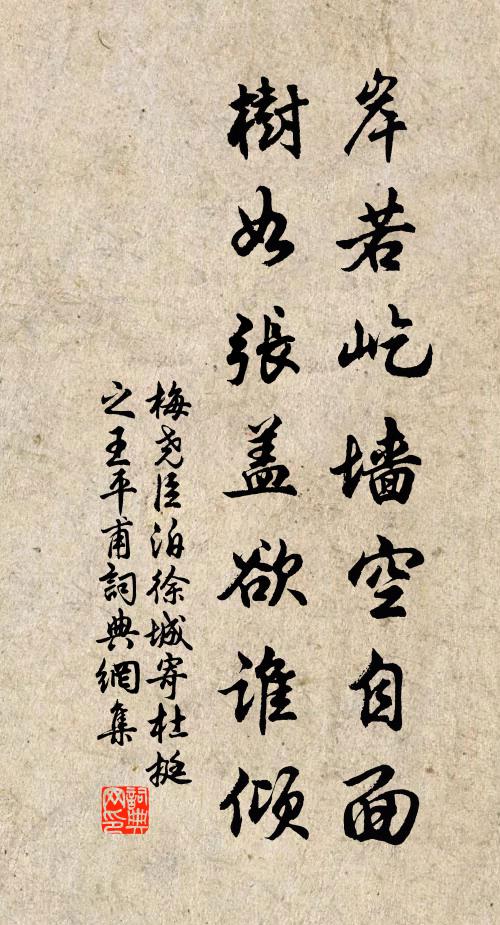 岸若屹墙空自面
樹如張盖欲谁傾
梅尧臣泊徐城寄杜挺
之王平甫詞典網集
詞典
网印